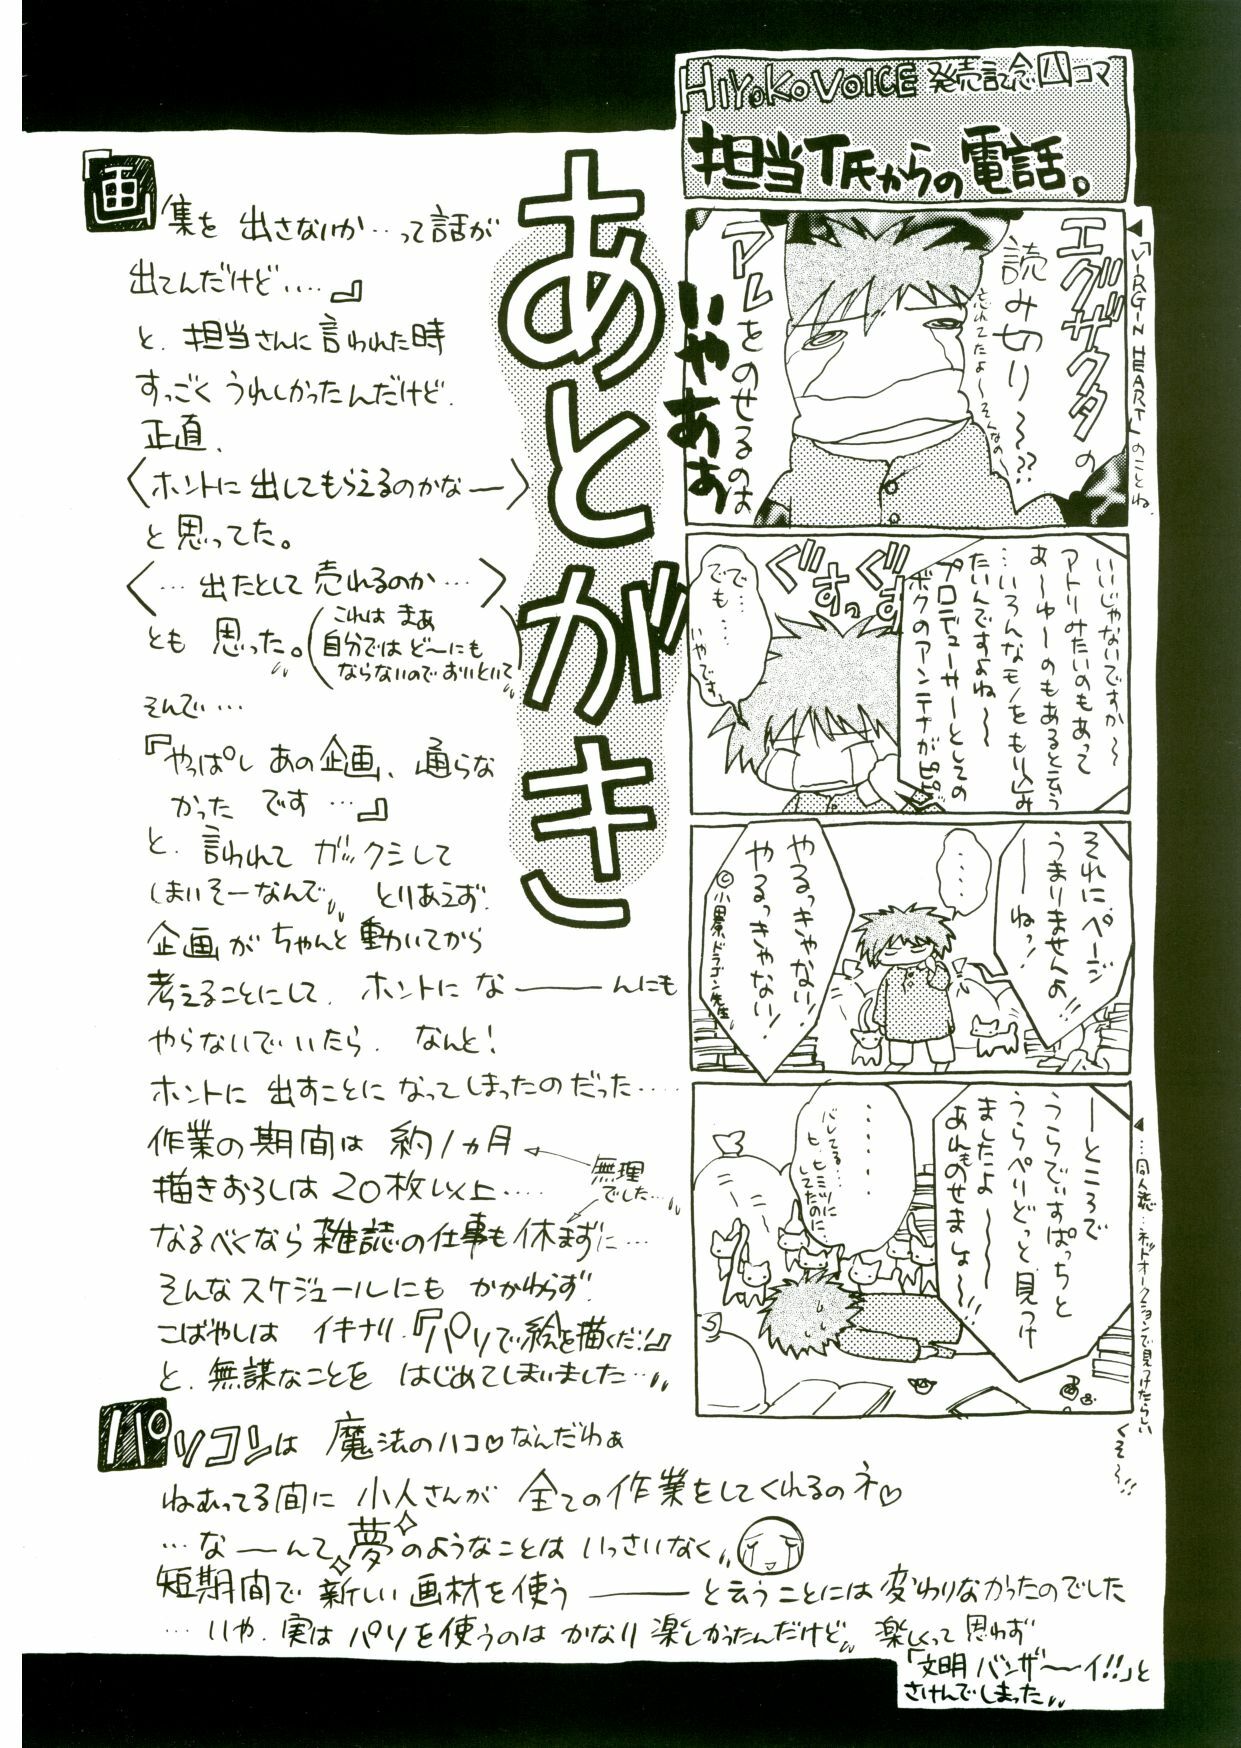 HIYOKO VOICE 発売記念四コマ
担当T氏からの電話。
◀「VIRGIN HEART」のことね。
エグザクタの
読み切り〜??
忘れてたよ〜そんなの〜
アレをのせるのは
いやあぁ
いいじゃないですか〜
アトリみたいのもあって
あ〜ゆーのもあると云う
…いろんなモノをもり込み
たいんですよね〜
プロデューサーとしての
ボクのアンテナが
ぐすっ
ぐす
でで…
でも…
いやです
それにページ
うまりませんよ
――ねっ!
・・・・
やるっきゃない!
やるっきゃない!
©小田原ドラゴン先生
―ところで
うらでぃすぱっちと
うらぺりどっと見つけ
ましたよ〜
あれものせましょ〜!!
・・・・・・
バレてる…
ヒ、ヒミツに
してたのに
◀…同人誌…ネットオークションで見つけたらしい
くそ〜!!
あとがき
『画集を出さないか…って話が
出てんだけど‥‥』
と、担当さんに言われた時
すっごくうれしかったんだけど、
正直、
〈ホントに出してもらえるのかなー〉
と思ってた。
〈…出たとして売れるのか…〉
とも思った。
(これはまあ
自分ではど〜にも
ならないのでおいといて)
そんで…
『やっぱしあの企画、通らな
かったです…』
と、言われてガックシして
しまいそーなんで、とりあえず、
企画がちゃんと動いてから
考えることにして、ホントになーーーんにも
やらないでいたら、なんと!
ホントに出すことになってしまったのだった‥‥
作業の期間は約1ヵ月
描きおろしは20枚以上‥‥
無理
でした…
なるべくなら雑誌の仕事も休まずに…
そんなスケジュールにもかかわらず、
こばやしはイキナリ、『パソで絵を描くだ!』
と、無謀なことをはじめてしまいました…
パソコンは魔法のハコ♡なんだわぁ
ねむってる間に小人さんが全ての作業をしてくれるのネ♡
…なーんて夢のようなことはいっさいなく
短期間で新しい画材を使う―――と云うことには変わりなかったのでした
…いや、実はパソを使うのはかなり楽しかったんだけど、楽しくって思わず
「文明バンザ〜イ!!」と
さけんでしまった